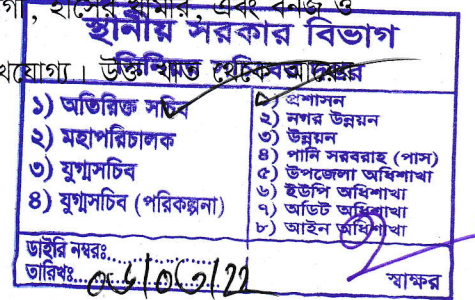 হাঁসের খামার, এবং বনজ ও
স্থানীয় সরকার বিভাগ
যোগ্য। উক্ত খাত থেকে
১) অতিরিক্ত সচিব
২) মহাপরিচালক
৩) যুগ্মসচিব
৪) যুগ্মসচিব (পরিকল্পনা)
১) প্রশাসন
২) নগর উন্নয়ন
৩) উন্নয়ন
৪) পানি সরবরাহ (পাস)
৫) উপজেলা অধিশাখা
৬) ইউপি অধিশাখা
৭) অডিট অধিশাখা
৮) আইন অধিশাখা
ডাইরি নম্বরঃ
তারিখঃ
স্বাক্ষর